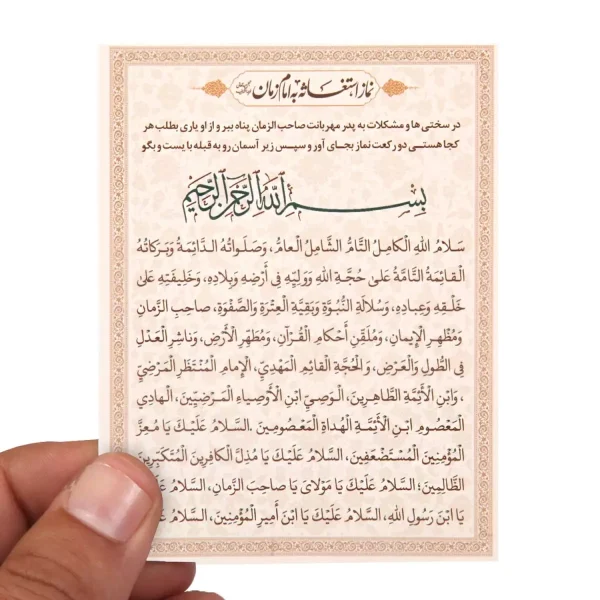 نماز استغاثه به امام زمان
در سختی ها و مشکلات به پدر مهربانت صاحب الزمان پناه ببر و از او یاری بطلب هر
کجا هستی دو رکعت نماز بجای آور و سپس زیر آسمان رو به قبله بایست و بگو
بِسْمِ اللَّهِ الرَّحْمَنِ الرَّحِيمِ
سَلامُ اللهِ الْكامِلُ التّامُّ الشّامِلُ الْعامُّ، وَصَلَواتُهُ الدّائِمَةُ وَبَرَكاتُهُ
الْقائِمَةُ التّامَّةُ عَلىٰ حُجَّةِ اللهِ وَوَلِيِّهِ فِي أَرْضِهِ وَبِلادِهِ، وَخَلِيفَتِهِ عَلىٰ
خَلْقِهِ وَعِبادِهِ، وَسُلالَةِ النُّبُوَّةِ وَبَقِيَّةِ الْعِتْرَةِ وَالصَّفْوَةِ، صاحِبِ الزَّمانِ
وَمُظْهِرِ الْإِيمانِ، وَمُلَقِّنِ أَحْكامِ الْقُرْآنِ، وَمُطَهِّرِ الْأَرْضِ، وَناشِرِ الْعَدْلِ
فِي الطُّولِ وَالْعَرْضِ، وَالْحُجَّةِ الْقائِمِ الْمَهْدِيِّ، الْإِمامِ الْمُنْتَظَرِ الْمَرْضِيِّ
، وَابْنِ الْأَئِمَّةِ الطّاهِرِينَ، الْوَصِيِّ ابْنِ الْأَوْصِياءِ الْمَرْضِيِّينَ، الْهادِي
الْمَعْصُومِ ابْنِ الْأَئِمَّةِ الْهُداةِ الْمَعْصُومِينَ .السَّلامُ عَلَيْكَ يا مُعِزَّ
الْمُؤْمِنِينَ الْمُسْتَضْعَفِينَ، السَّلامُ عَلَيْكَ يا مُذِلَّ الْكافِرِينَ الْمُتَكَبِّرِينَ
الظّالِمِينَ؛ السَّلامُ عَلَيْكَ يا مَوْلايَ يا صاحِبَ الزَّمانِ، السَّلامُ
يا ابْنَ رَسُولِ اللهِ، السَّلامُ عَلَيْكَ يا ابْنَ أَمِيرِ الْمُؤْمِنِينَ، السَّلامُ